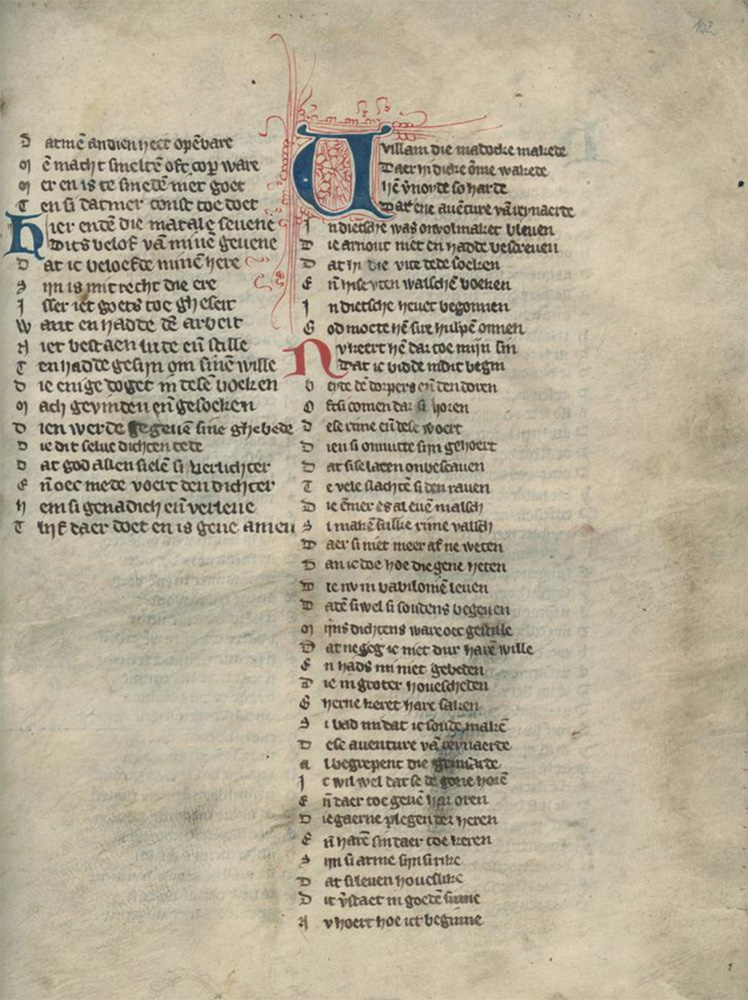 102
D atmē andien heet opēbare
M ē macht smeltē oft cop ware
M er en is te smedē niet goet
T en si datmer const toe doet
Hier endē die matale seuene
Dits belof vā miue geuene
D at ic beloefde minē here
S iin is mit recht die ere
I sser iet goets toe ghekeit
W ant en hadde dē arbeit
N iet bestaen lute eñ stille
T en hadde gesijn om sinē wille
D ie enige doget in desē boeken
M ach gevinden eñ gesoeken
D ien werde gegeuē sine ghebede
D ie dit selue dichten dede
D at god allen sielē si verlichter
E ñ oec mede voert den dichter
H em si genadich eñ verlene
T lijf daer doet en is gene amen
Willam die madocke makede
Daer hi dicke ōme wakede
Hē v̄noyde so harde
Dat ene auēture vā reynaerde
I n dietsche was onvolmaket bleuen
D ie arnout niet en hadde bescreuen
D at hi die vite dede soeken
E ñ hise vten walschē boeken
I n dietsche heuet begonnen
G od moete hē sire hulpē onnen
Nv keert hē daer toe mijn sin
Dat ic bidde in dit begin
B eide dē dorpers eñ den doren
O fsi comen daer si horen
D ese rime eñ dese woert
D ien si onnutte sijn gehoert
D at sise laten onbescauen
T e vele slachtē si den rauen
D ie ēmer es al euē malsch
S i makē sulke rime valsch
D aer si niet meer af ne weten
D an ic doe hoe die gene heten
D ie nv in babilonie leuen
D adē si wel si soudens begeuen
M ijns dichtens ware oec gestille
D at ne seg ic niet dur harē wille
E n hads mi niet gebeden
D ie in groter houescheden
G herne keret hare saken
S i bad mi dat ic soude makē
D ese auenture vā reynaerde
A l begrepent die grinaerde
I c wil wel dat se de gone horē
E ñ daer toe geuē har oren
D ie gaerne plegen der heren
E ñ harē sin daer toe keren
S ijn si arme sijn si rike
D at si leuen houeslike
D it v̄staet in goedē sinne
N v hoert hoe ict beginne